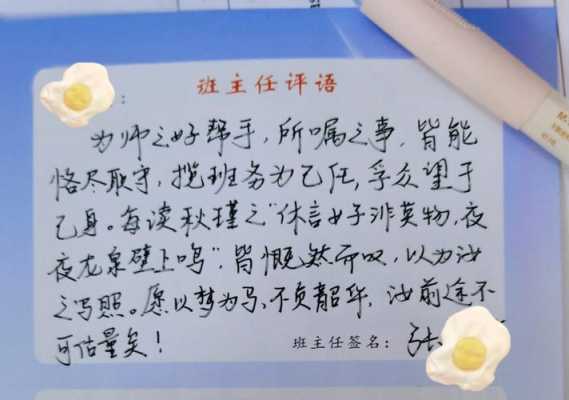 班主任评语
：
为师之好帮手，所嘱之事，皆能
恪尽职守，揽班务为己任，孚众望于
己身。每读秋瑾之“休言女子非英物，夜
夜龙泉壁上鸣”，皆慨然而叹，以为汝
之写照。愿以梦为马、不负韶华，汝前途不
可估量矣！
班主任签名： 张